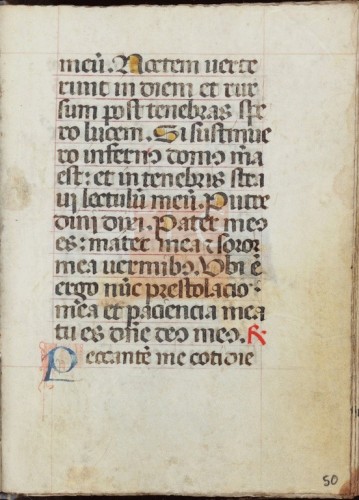 meū. Noctem verte
runt in diem et rur
sum post tenebras spe
ro lucem. Si sustinue
ro infernꝰ domꝰ m̄a
est: et in tenebris stra
ui lectulū meū. Putre
dini dixi. Pater meꝰ
es: mater mea ⁊ soror
mea vermibꝰ. Vbi ē
ergo nūc prestolacio
mea et paciencia mea
tu es dn̄e deꝰ meꝰ. ℟
Peccantē me cotidie
50